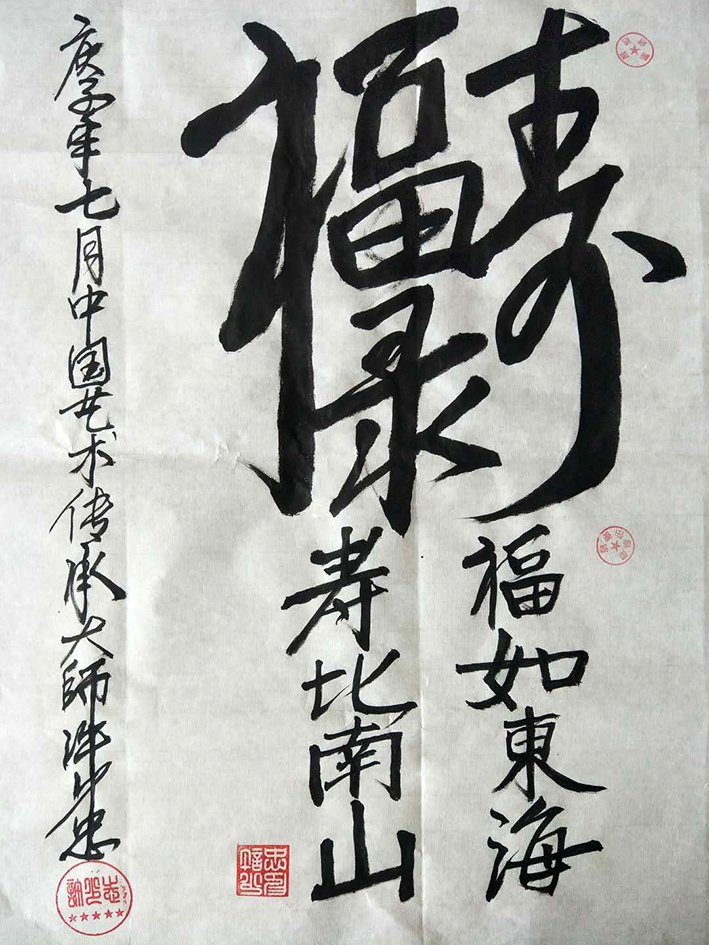 福禄寿
福如東海
寿比南山
庚子年七月中国艺术传承大师